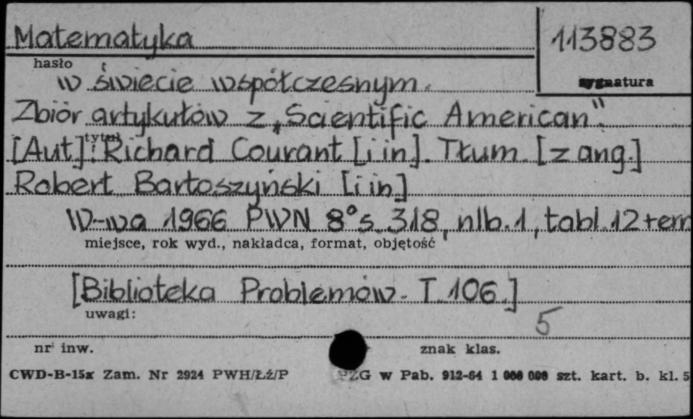 Matematyka
113883
hasło
sygnatura
w świecie współczesnym.
Zbiór artykułów z „Scientific American".
tytuł
[Aut]: Richard Courant [i in]. Tłum. [z ang.]
Robert Bartoszyński [i in]
W-wa 1966 PWN 8° s. 318, nlb. 1, tabl. 12 + err
miejsce, rok wyd., nakładca, format, objętość
[Biblioteka Problemów. T. 106.]
uwagi:
5
nr inw.
znak klas.
CWD-B-15x Zam. Nr 2924 PWH/ŁŹ/P
PZG w Pab. 912-64 1 000 000 szt. kart. b. kl. 5